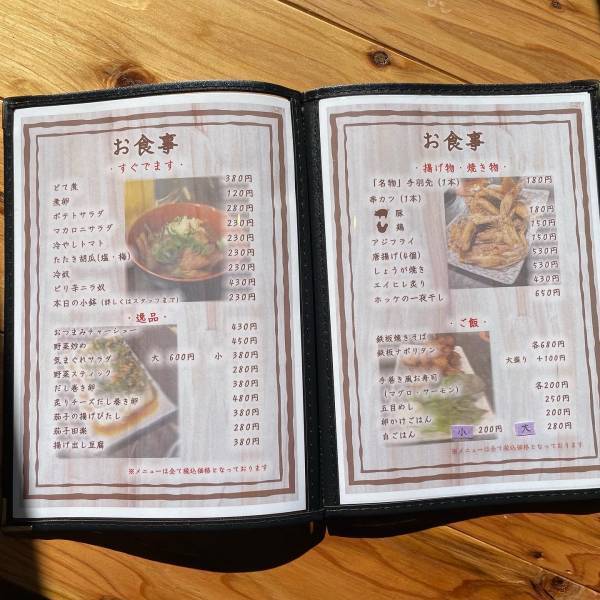 お食事
・すぐでます・
どて煮 380円
煮卵 120円
ポテトサラダ 280円
マカロニサラダ 230円
冷やしトマト 230円
たたき胡瓜(塩・梅) 230円
冷奴 230円
ピリ辛ニラ奴
本日の小鉢 (詳しくはスタッフまで) 230円
・逸品・
おつまみチャーシュー 430円
野菜炒め 450円
気まぐれサラダ 大 600円 小 380円
野菜スティック 280円
だし巻き卵 380円
炙りチーズだし巻き卵 480円
茄子の揚げびたし 380円
茄子田楽 280円
揚げ出し豆腐 380円
※メニューは全て税込価格となっております
お食事
・揚げ物・焼き物・
「名物」手羽先 (1本) 180円
串カツ (1本)
豚 180円
鶏 150円
アジフライ 150円
唐揚げ(4個) 530円
しょうが焼き 530円
エイヒレ炙り 430円
ホッケの一夜干し 650円
・ご飯・
鉄板焼きそば 各680円
鉄板ナポリタン 大盛り +100円
手巻き風お寿司
(マグロ・サーモン) 各200円
五目めし 250円
卵かけごはん 200円
白ごはん 小 200円 大 280円
※メニューは全て税込価格となっております